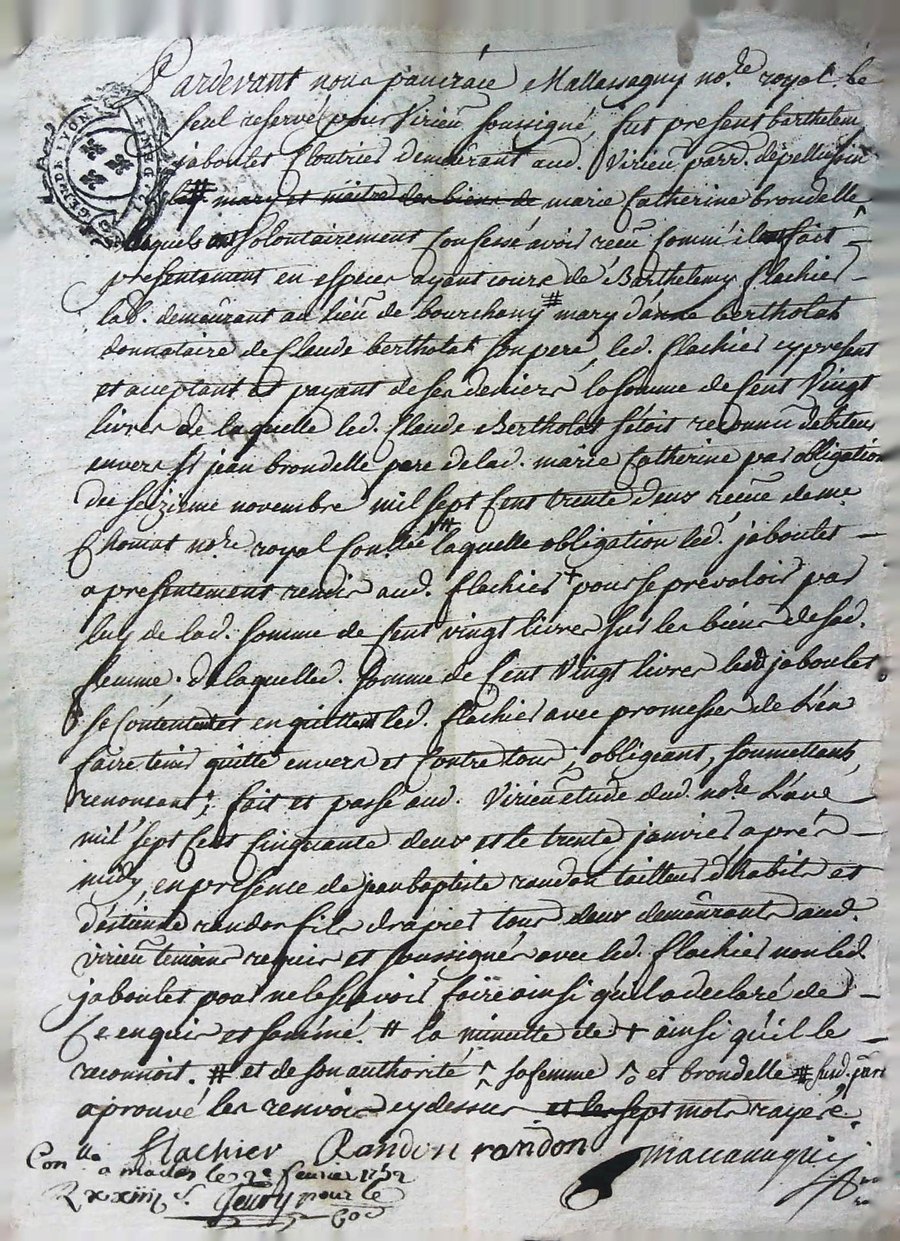 Pardevant nous pancrace Mallassagny no.re royal
seul reservé pour Virieu soussigné, fut present barthelem
jaboulet cloutrier demeurant aud. Virieu parr. de pellussin
# mary et maitre des biens de marie Catherine brondelle
lesquels ont volontairement Confessé avoir receu Comm'il fait
presentement en especes ayant cours de Barthelemy flachier
lab. demeurant au lieu de bourchany # mary d'anne bertholat
donnataire de Claude bertholat son pere, led. flachier cy present
et aceptant et payant de ses deniers la somme de Cent Vingt
livres de laquelle led. Claude Bertholat s'etoit reconnu debiteur
envers Sr jean brondelle pere de lad. marie Catherine par obligation
du seizieme novembre mil sept Cent trente deux receue de me
Chomat no.re royal # laquelle obligation led. jaboulet
a presentement rendu aud. flachier + pour se prevaloir par
luy de lad. somme de Cent vingt livres sur les biens de sad.
femme. de laquelle d. somme de Cent Vingt livres led. jaboulet
se Contente et en quitte led. flachier avec promesse de l'en
faire tenir quitte envers et Contre tous, obligeant, soumettant,
renoncent; fait et passé aud. Virieu etude dud. no.re L'an
mil sept Cent Cinquante deux et le trente janvier aprés
midy, en presence de jean baptiste randon tailleur d'habits et
d'estienne randon fils drapier tous deux demeurants aud.
virieu temoins requis et soussignés avec led. flachier non led.
jaboulet pour ne le sçavoir faire ainsi qu'il a declaré de
Ce enquis et sommé. # la minutte de + ainsi qu'il le
reconnoit. # et de son authorité ^ sa femme ^ et brondelle #
aprouvé les renvois cy dessus et les sept mots rayéz
flachier Randon randon
Con.lle a maclas le 2e fevrier 1752
R xxiiij s. pour le